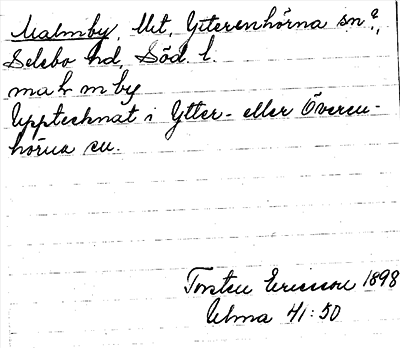 Malmby, Mt, Ytterenhörna sn?,
Selebo hd, Söd. l.
malmby
Upptecknat i Ytter- eller Överen-
hörna sn.
Torsten Ericsson 1898
Ulma 41:50